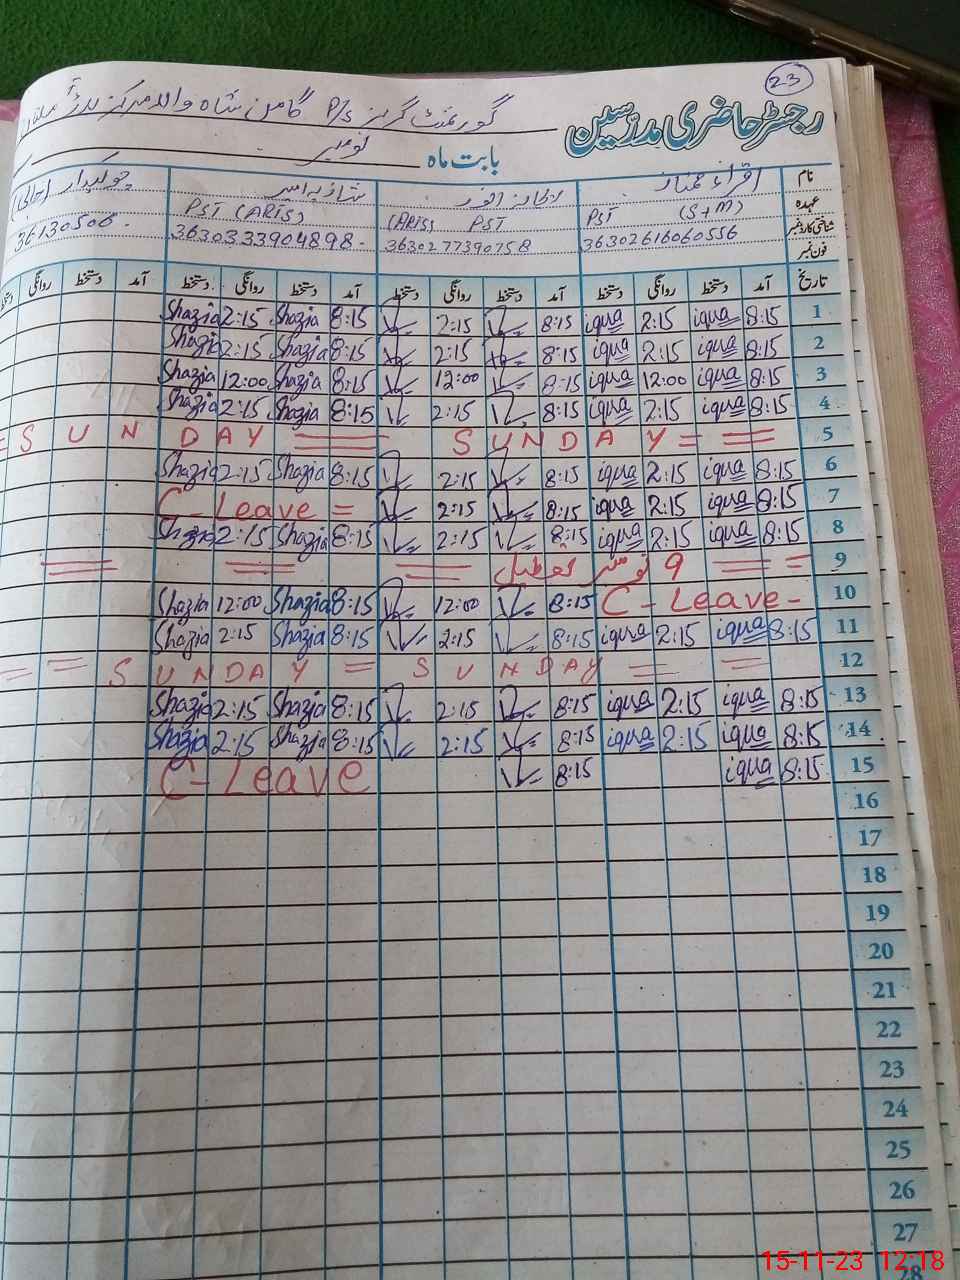 23
رجسٹر حاضری مدرسین
گورنمنٹ گرلز P/S گامن شاہ والا مرکز
بابت ماہ نومبر
نام اقراء ممتاز شازیہ امیر چوکیدار (خالی)
عہدہ PST (S+M) PST (ARTS) PST (ARTS)
شناختی کارڈ نمبر 36302616060556 3630277390758 3630333904898- 36130506-
فون نمبر
تاریخ آمد دستخط روانگی دستخط آمد دستخط روانگی دستخط آمد دستخط روانگی دستخط آمد دستخط روانگی دستخط
1 8:15 iqua 2:15 iqua 8:15 2:15 8:15 Shazia 2:15 Shazia
2 8:15 iqua 2:15 iqua 8:15 2:15 8:15 Shazia 2:15 Shazia
3 8:15 iqua 12:00 iqua 8:15 12:00 8:15 Shazia 12:00 Shazia
4 8:15 iqua 2:15 iqua 8:15 2:15 8:15 Shazia 2:15 Shazia
= SUNDAY = SUNDAY = = 5
6 8:15 iqua 2:15 iqua 8:15 2:15 8:15 Shazia 2:15 Shazia
7 8:15 iqua 2:15 iqua 8:15 2:15 C-Leave =
8 8:15 iqua 2:15 iqua 8:15 2:15 8:15 Shazia 2:15 Shazia
9 = = 9 نومبر تعطیل = = =
10 C-Leave- 8:15 12:00 8:15 Shazia 12:00 Shazia
11 8:15 iqua 2:15 iqua 8:15 2:15 8:15 Shazia 2:15 Shazia
= = SUNDAY = SUNDAY = = 12
13 8:15 iqua 2:15 iqua 8:15 2:15 8:15 Shazia 2:15 Shazia
14 8:15 iqua 2:15 iqua 8:15 2:15 8:15 Shazia 2:15 Shazia
15 8:15 iqua 8:15 C-Leave
16
17
18
19
20
21
22
23
24
25
26
27
28
15-11-23 12:18